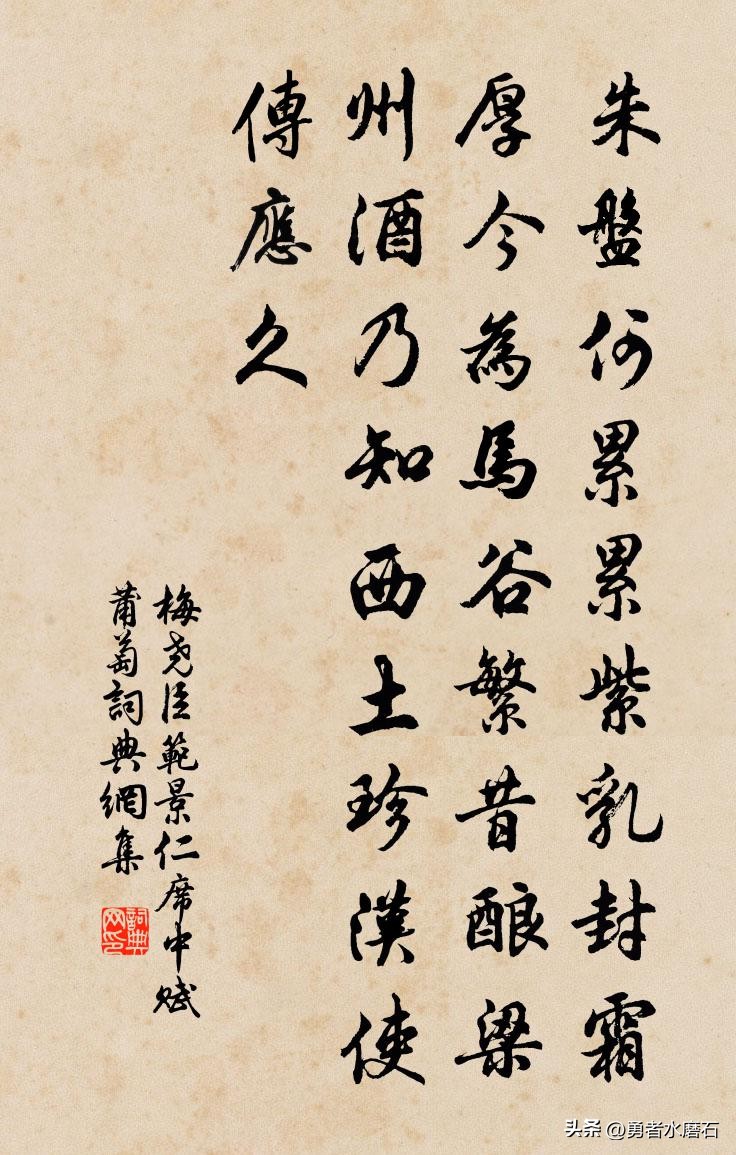 朱盤何累累紫乳封霜
厚今為馬谷繁昔酿梁
州酒乃知西土珍漢使
傳應久
梅尧臣範景仁席中赋
葡萄詞典網集
詞典网印
头条 @勇者水磨石